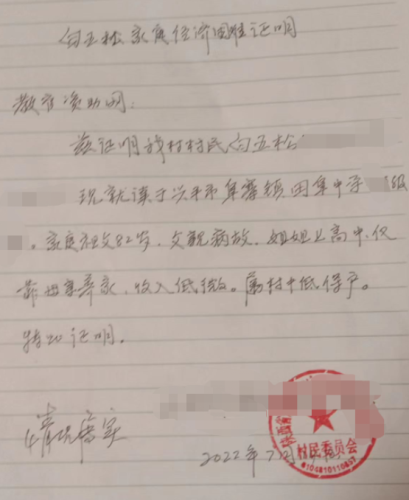 向五松家庭经济困难证明
教育资助网:
兹证明我村村民向五松
现就读于兴平市阜寨镇田阜中学 级
。家庭祖父82岁,父亲病故,姐姐上高中,仅
靠母亲养家,收入低微。属村中低保户。
特此证明。
情况属实
村民委员会
6104810110837
2022年7月